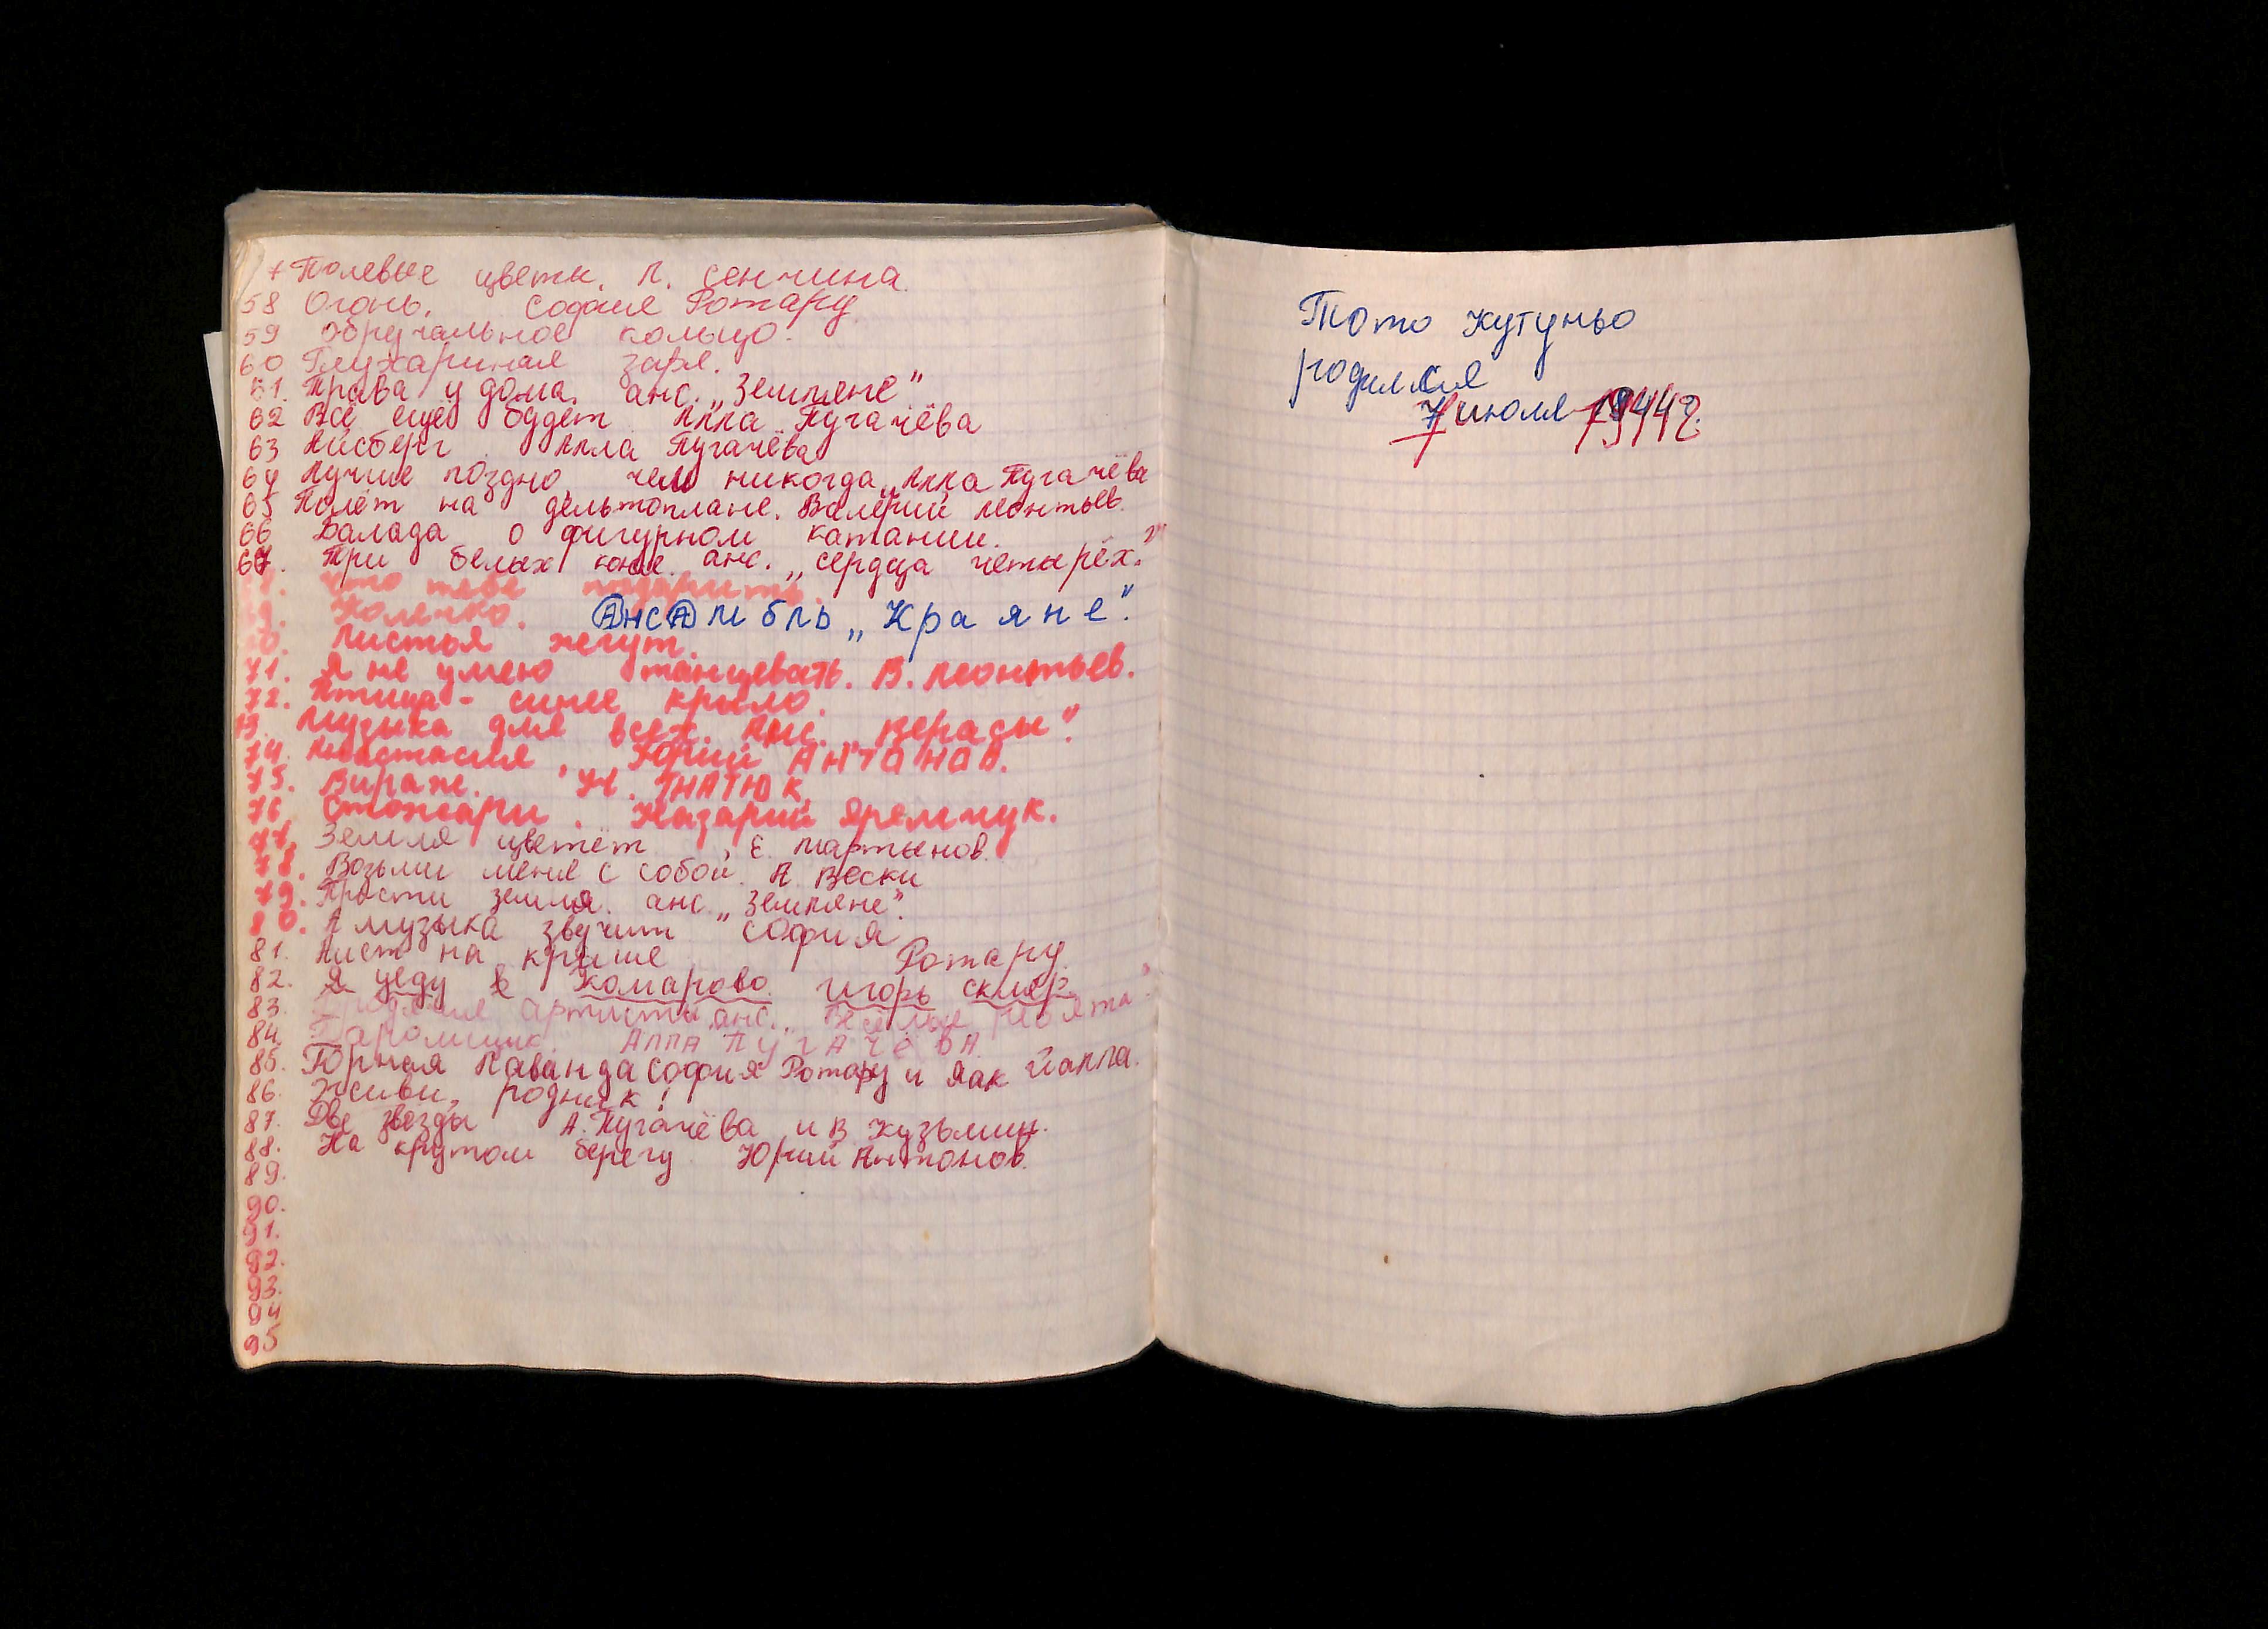 7 Полевые цветы. Л. Сенчина.
58 Огонь. София Ротару
59 Обручальное кольцо.
60 Глухариная заря.
61. Трава у дома. анс. „Земляне"
62 Всё ещё будет Алла Пугачёва
63 Айсберг. Алла Пугачёва
64 Лучше поздно, чем никогда. Алла Пугачёва
65 Полёт на дельтоплане. Валерий Леонтьев.
66 Балада о фигурном катании.
67. Три белых коня. анс. „Сердца четырёх."
Что тебе подарить.
69. Колечко. Ансамбль „Краяне".
70. Листья жгут.
71. Я не умею танцевать. В. Леонтьев.
72. Птица - синее крыло.
73. Музыка для всех. Анс. „Верасы".
74. Анастасия, Юрий Антанал.
75. Вираж. Н. ГНАТЮК.
76. Стожари. Назарий Яремчук.
77. Земля цветёт, Е. Мартынов.
78. Возьми меня с собой. А. Вески
79. Прости земля. анс. „Земляне".
80. А музыка звучит София
81. Аист на крыше Ротару.
82. Я уеду в Комарово. Игорь Скляр.
83. артисты анс.
84. Паромщик. АЛЛА ПУГАЧЁВА
85. Горная Лаванда София Ротару и Яак Йалла.
86. Живи, родник!
87. Две звезды А. Пугачёва и В. Кузьмин.
88. На крутом берегу Юрий Антонов.
89.
90.
91.
92.
93.
94
95
Тото Кутуньо
родился
7 июля 1944г.